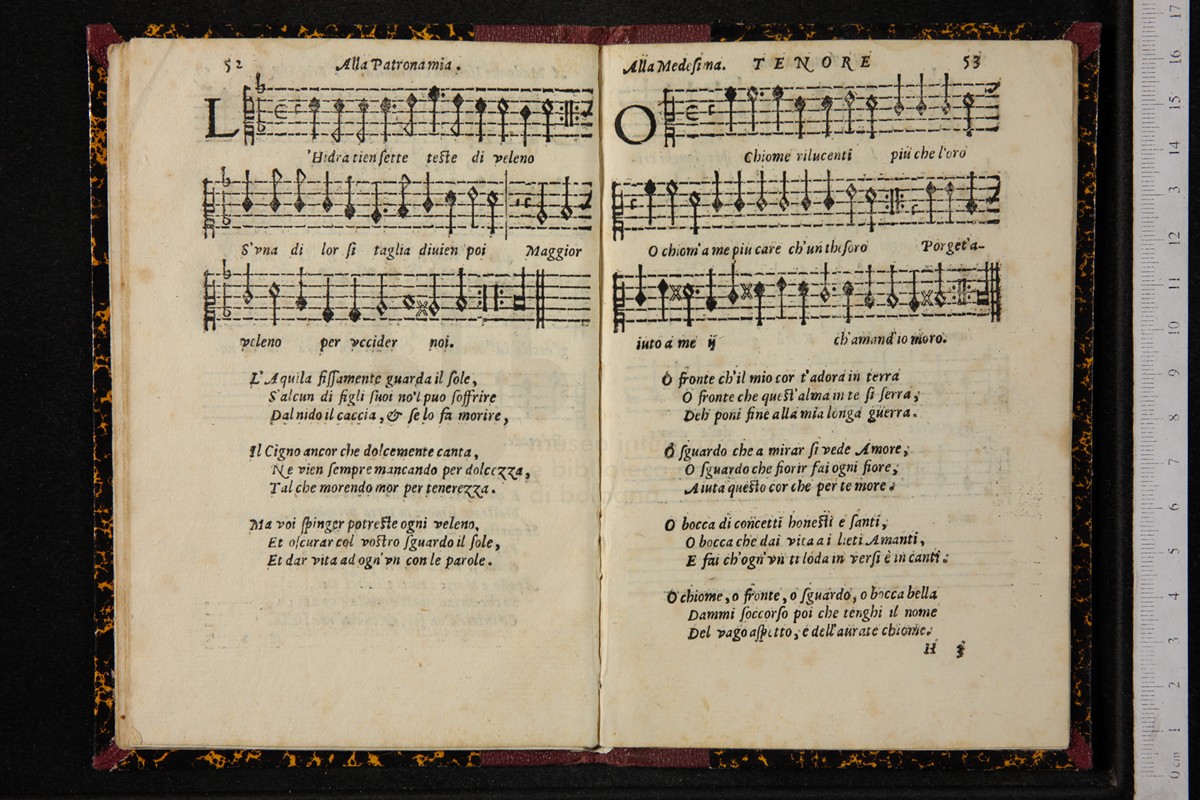 52 Alla Patrona mia.
L'Hidra tien sette teste di veleno
S'vna di lor si taglia diuien poi Maggior
veleno per vccider noi.
L'Aquila fissamente guarda il sole,
S'alcun di figli suoi no'l puo soffrire
Dal nido il caccia, & se lo fa morire,
Il Cigno ancor che dolcemente canta,
Ne vien sempre mancando per dolcezza,
Tal che morendo mor per tenerezza.
Ma voi spinger potreste ogni veleno,
Et oscurar col vostro sguardo il sole,
Et dar vita ad ogn'vn con le parole.
Alla Medesima. TENORE 53
O Chiome rilucenti più che l'oro
O chiom'a me piu care ch'un thesoro Porget'a-
iuto a me ij ch'amand'io moro.
O fronte ch'il mio cor t'adora in terra
O fronte che quest'alma in te si serra,
Deh poni fine alla mia longa guerra.
O sguardo che a mirar si vede Amore,
O sguardo che fiorir fai ogni fiore,
Aiuta questo cor che per te more.
O bocca di concetti honesti e santi,
O bocca che dai vita a i lieti Amanti,
E fai ch'ogn'vn ti loda in versi è in canti.
O chiome, o fronte, o sguardo, o bocca bella
Dammi soccorso poi che tenghi il nome
Del vago aspetto, è dell'aurate chiome.
H 3
museo internazionale
e biblioteca
di bologna
0 cm 1 2 3 4 5 6 7 8 9 10 11 12 13 14 15 16 17